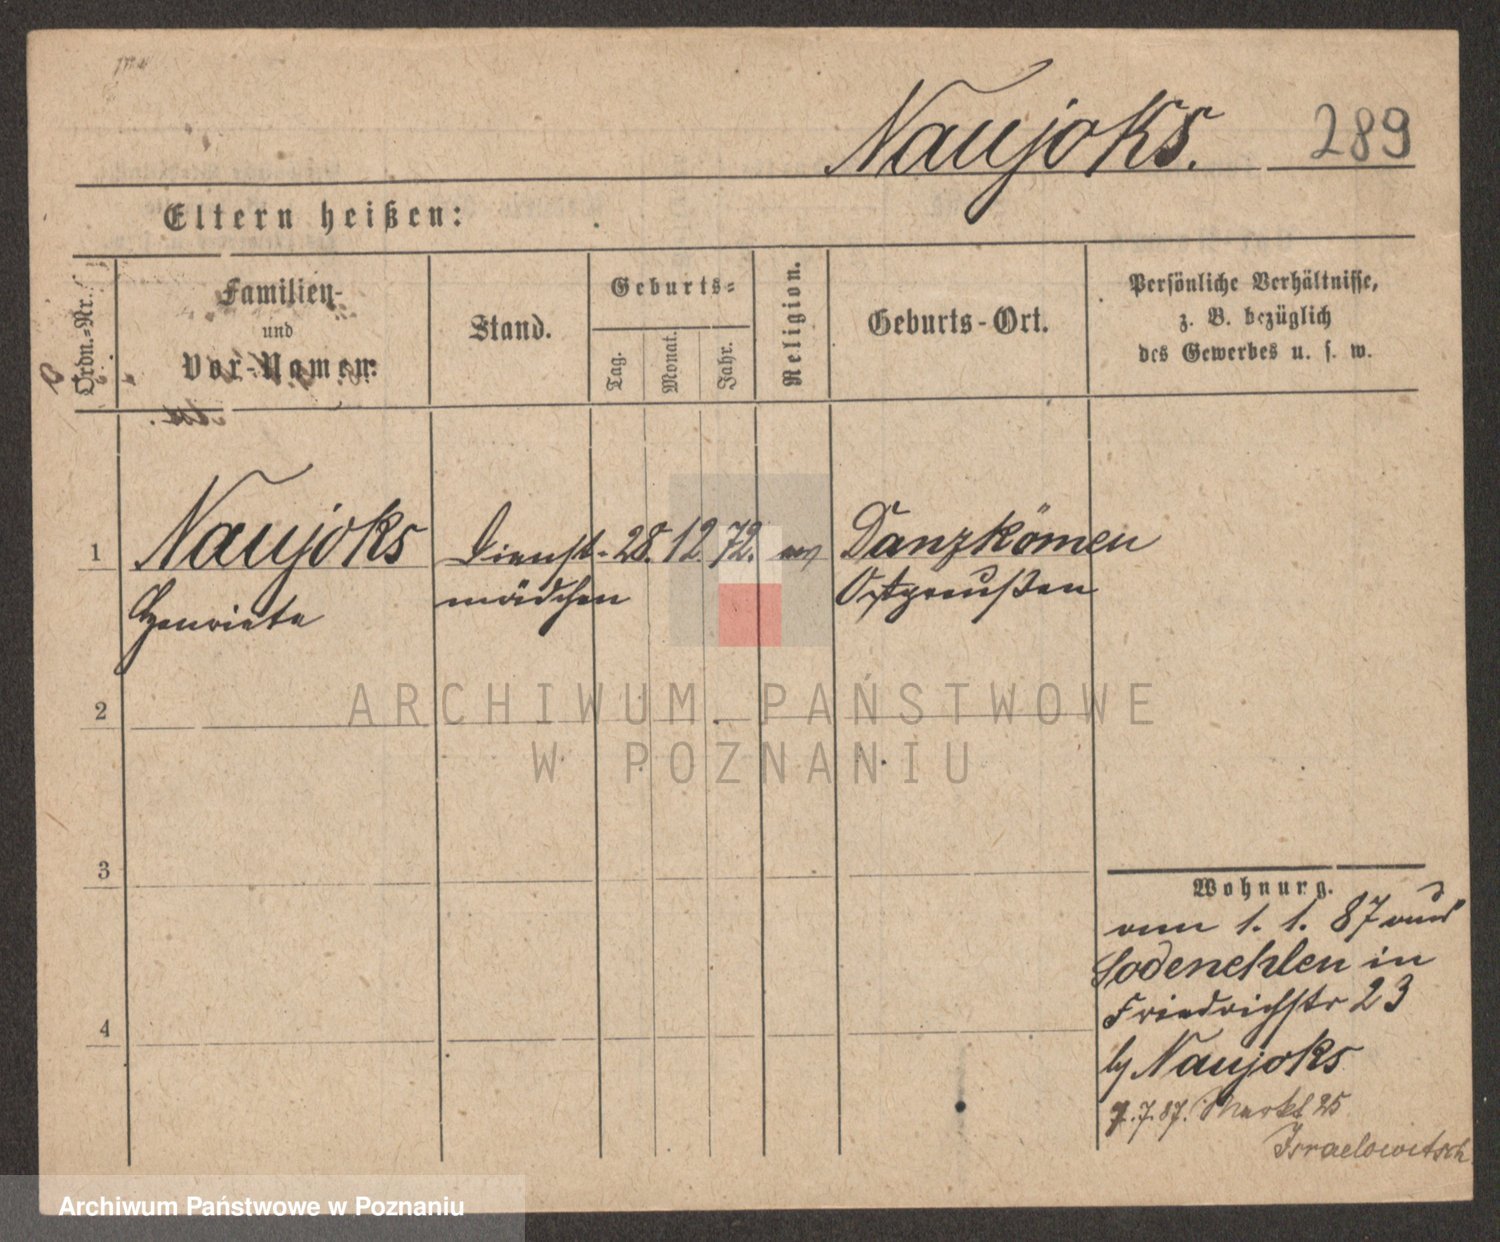 Naujoks. 289
Eltern heißen:
Ordn.-Nr.
Familien-
und
Vor-Namen:
Stand.
Geburts-
Tag.
Monat.
Jahr.
Religion.
Geburts-Ort.
Persönliche Verhältnisse,
z. B. bezüglich
des Gewerbes u. s. w.
1 Naujoks Dienst- 28. 12. 72. ev Danzkömen
Henriete mädchen Ostpreußen
2
ARCHIWUM PAŃSTWOWE
W POZNANIU
3
4
Wohnung.
vom 1. 1. 87
Sodenehlen in
Friedrichstr 23
by Naujoks
7.7.87. Markt 25
Israelowitsch
Archiwum Państwowe w Poznaniu